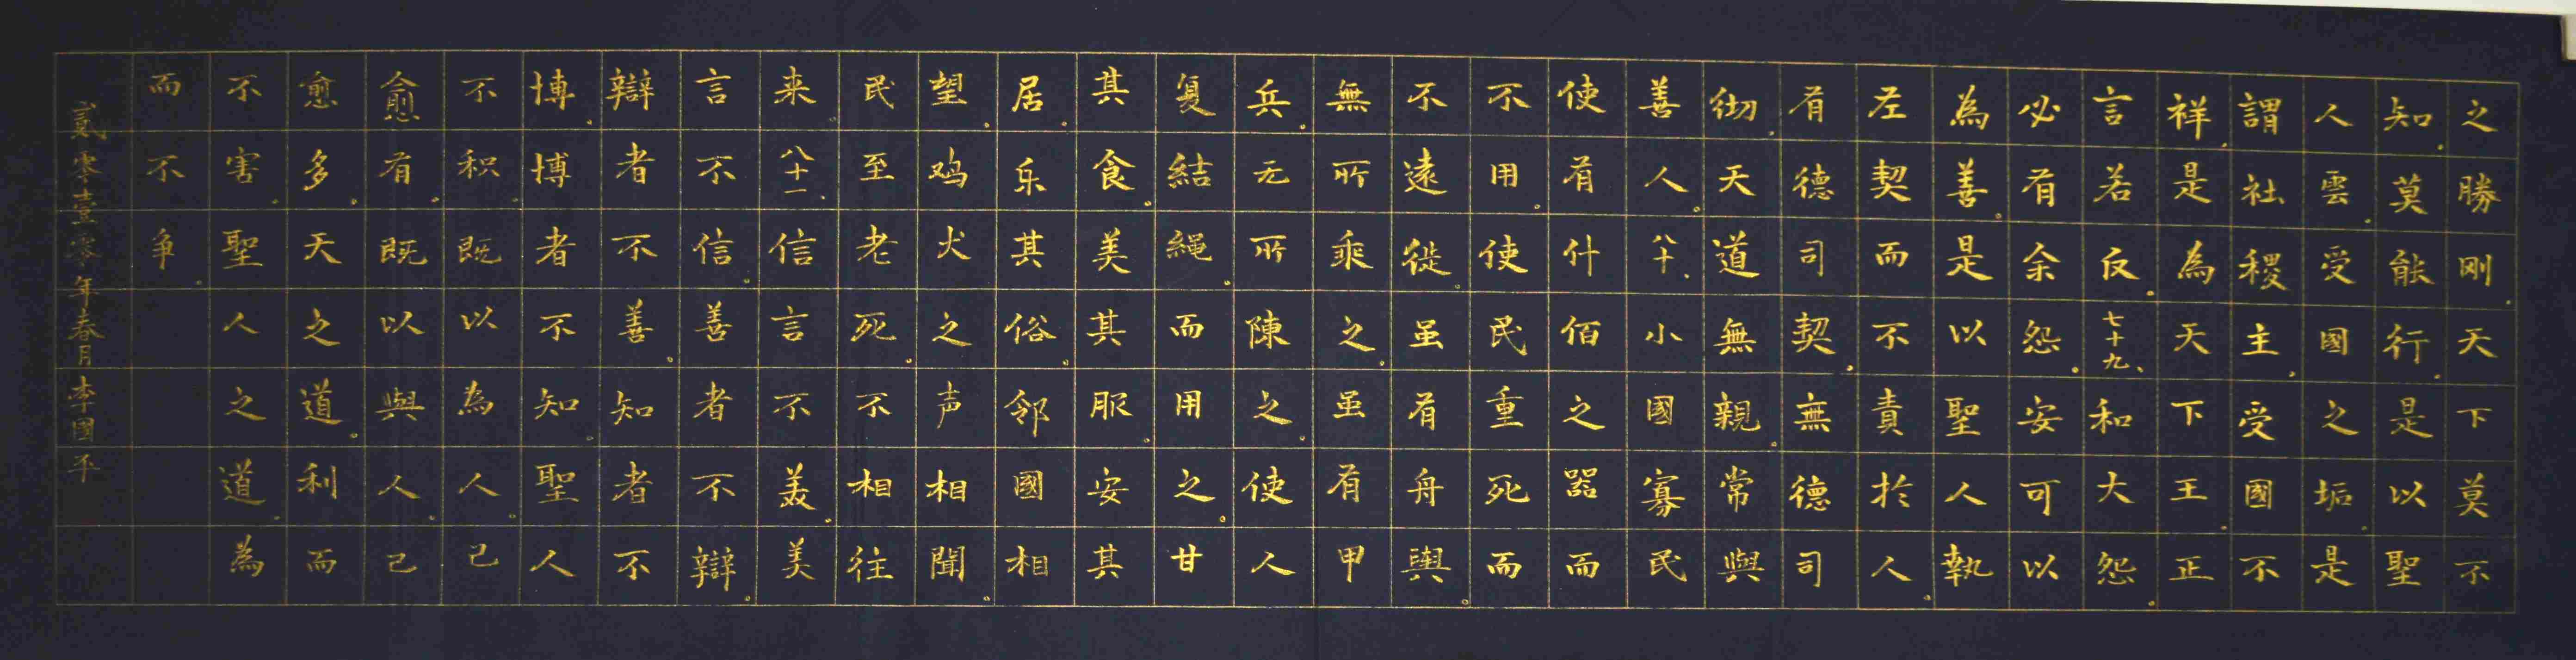 之勝刚。天下莫不
知。莫能行。是以聖
人雲。受國之垢。是
謂社稷主。受國不
祥。是為天下王。正
言若反。七十九、和大怨。
必有余怨。安可以
為善。是以聖人執
左契而不責於人。
有德司契。無德司
彻。天道無親。常與
善人。八十、小國寡民
使有什佰之器而
不用。使民重死而
不遠徙。虽有舟輿。
無所乘之。虽有甲
兵。无所陳之。使人
复結繩。而用之。甘
其食。美其服。安其
居。乐其俗。邻國相
望。鸡犬之声相聞。
民至老死。不相往
来。八十一、信言不美。美
言不信。善者不辯。
辯者不善。知者不
博。博者不知。聖人
不积。既以為人。己
愈有。既以與人。己
愈多。天之道。利而
不害。聖人之道。為
而不争。
贰零壹零年春月李國平